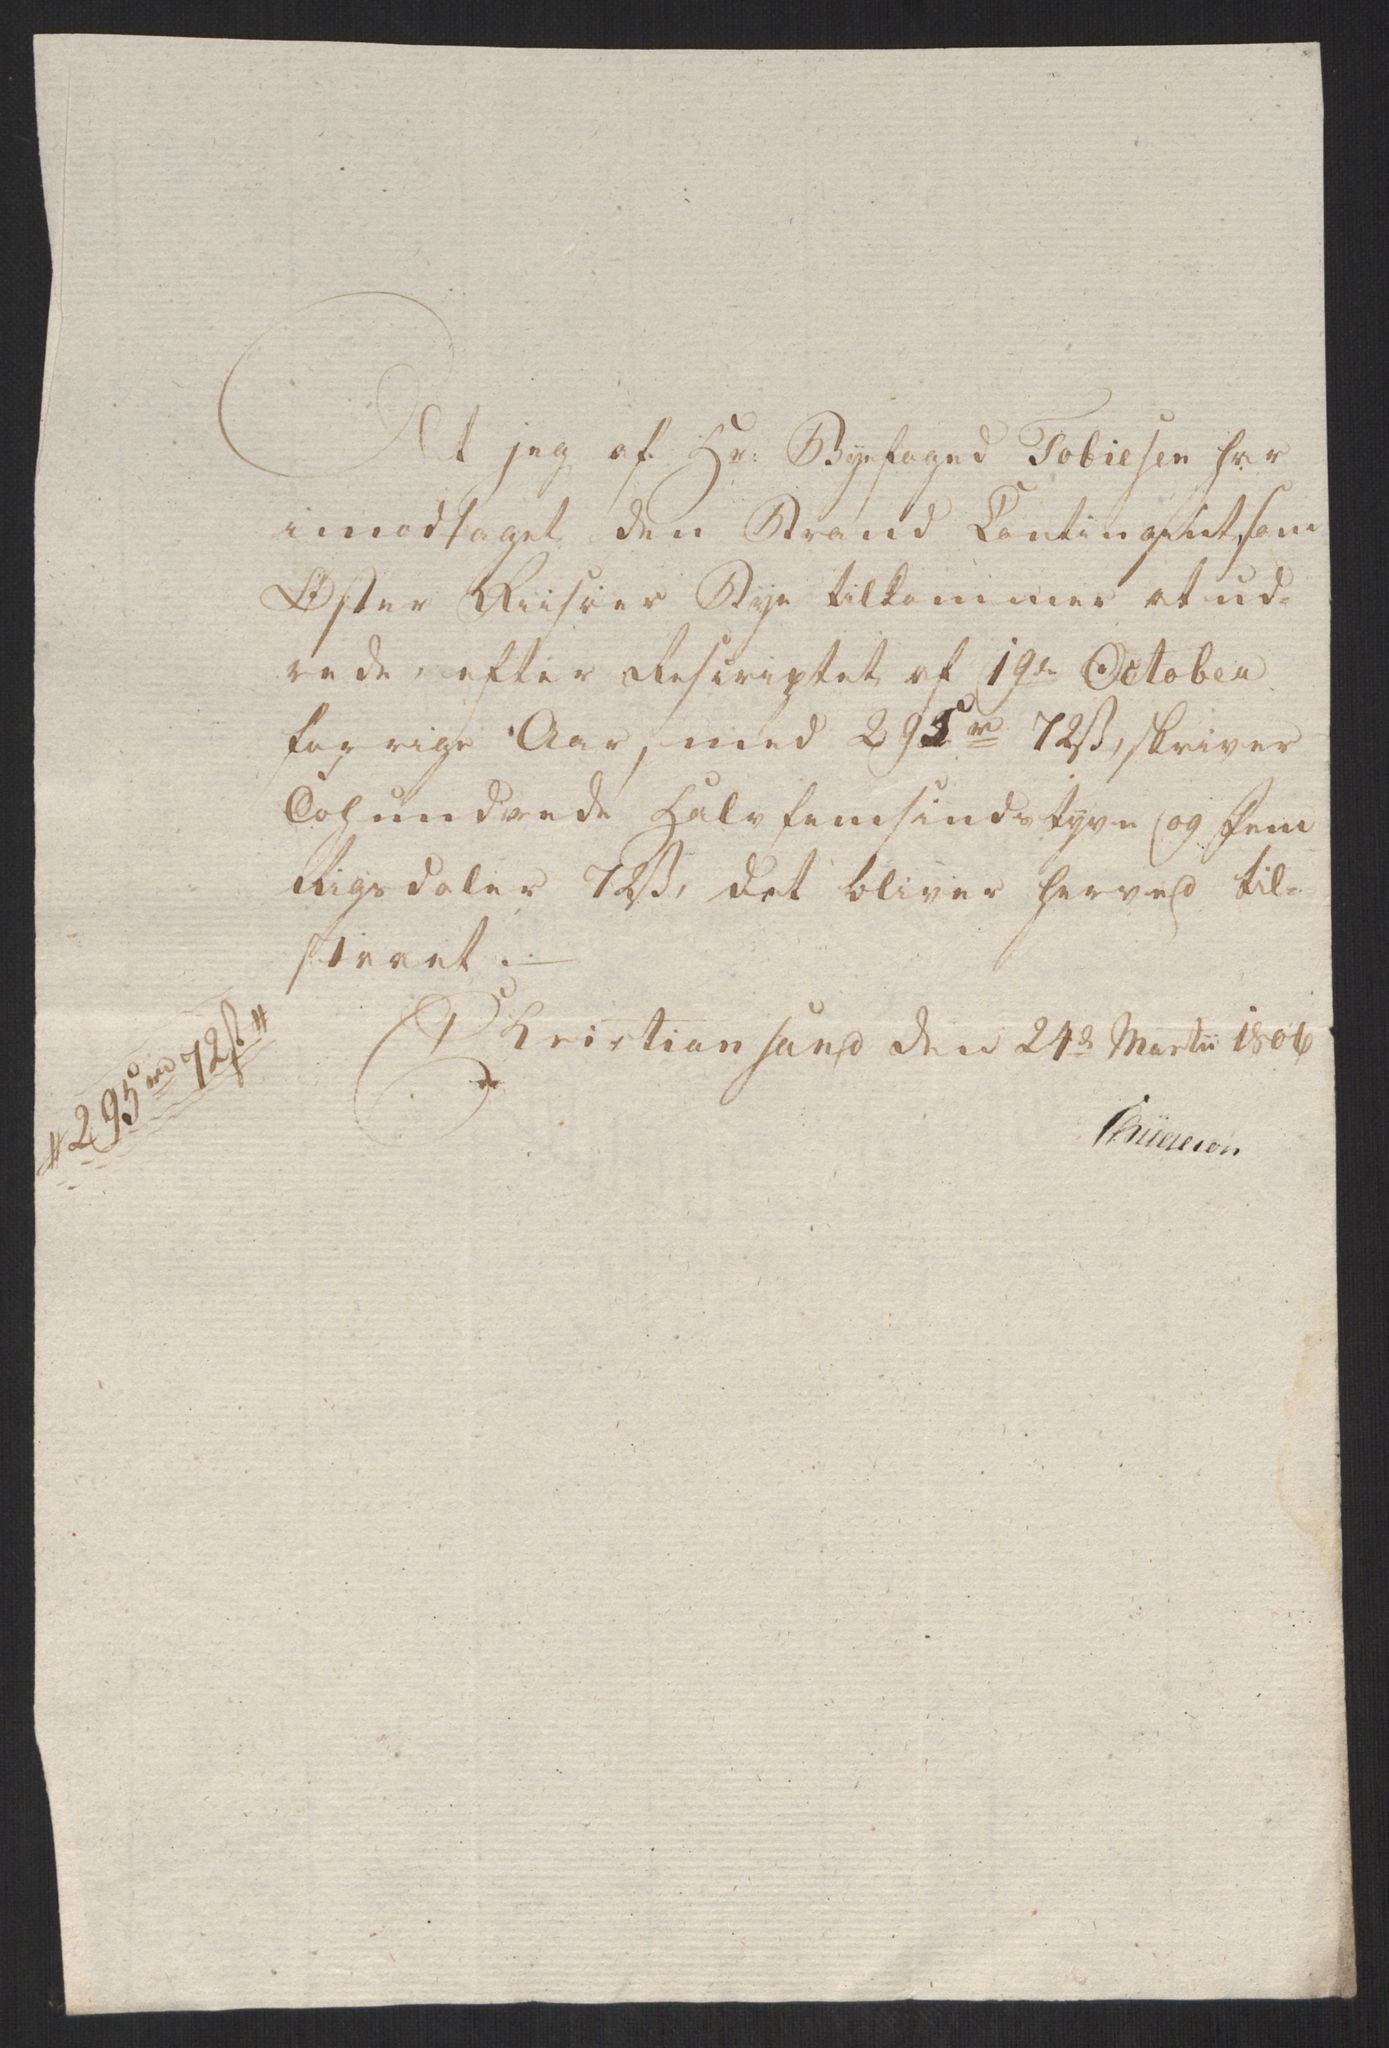 At jeg af Hr: Byefoged Tobiesen har
imodtaget den Brand Contingent, som
Øster Riisøer Bye tilkommer at ud-
rede, efter Rescriptet af 19de October
forrige Aar, med 295 rd 72 ß, skriver
Tohundrede Halvfemsindstyve og Fem
Rigsdaler 72 ß, det bliver herved til-
staaet.
Christiansand den 24d Martii 1806
# 295 rd 72 ß #